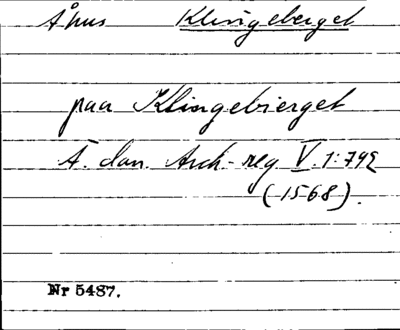 Åhus Klingeberget
paa Klingebierget
Ä. dan. Arch-reg V. 1:792
(1568).
Nr 5487.